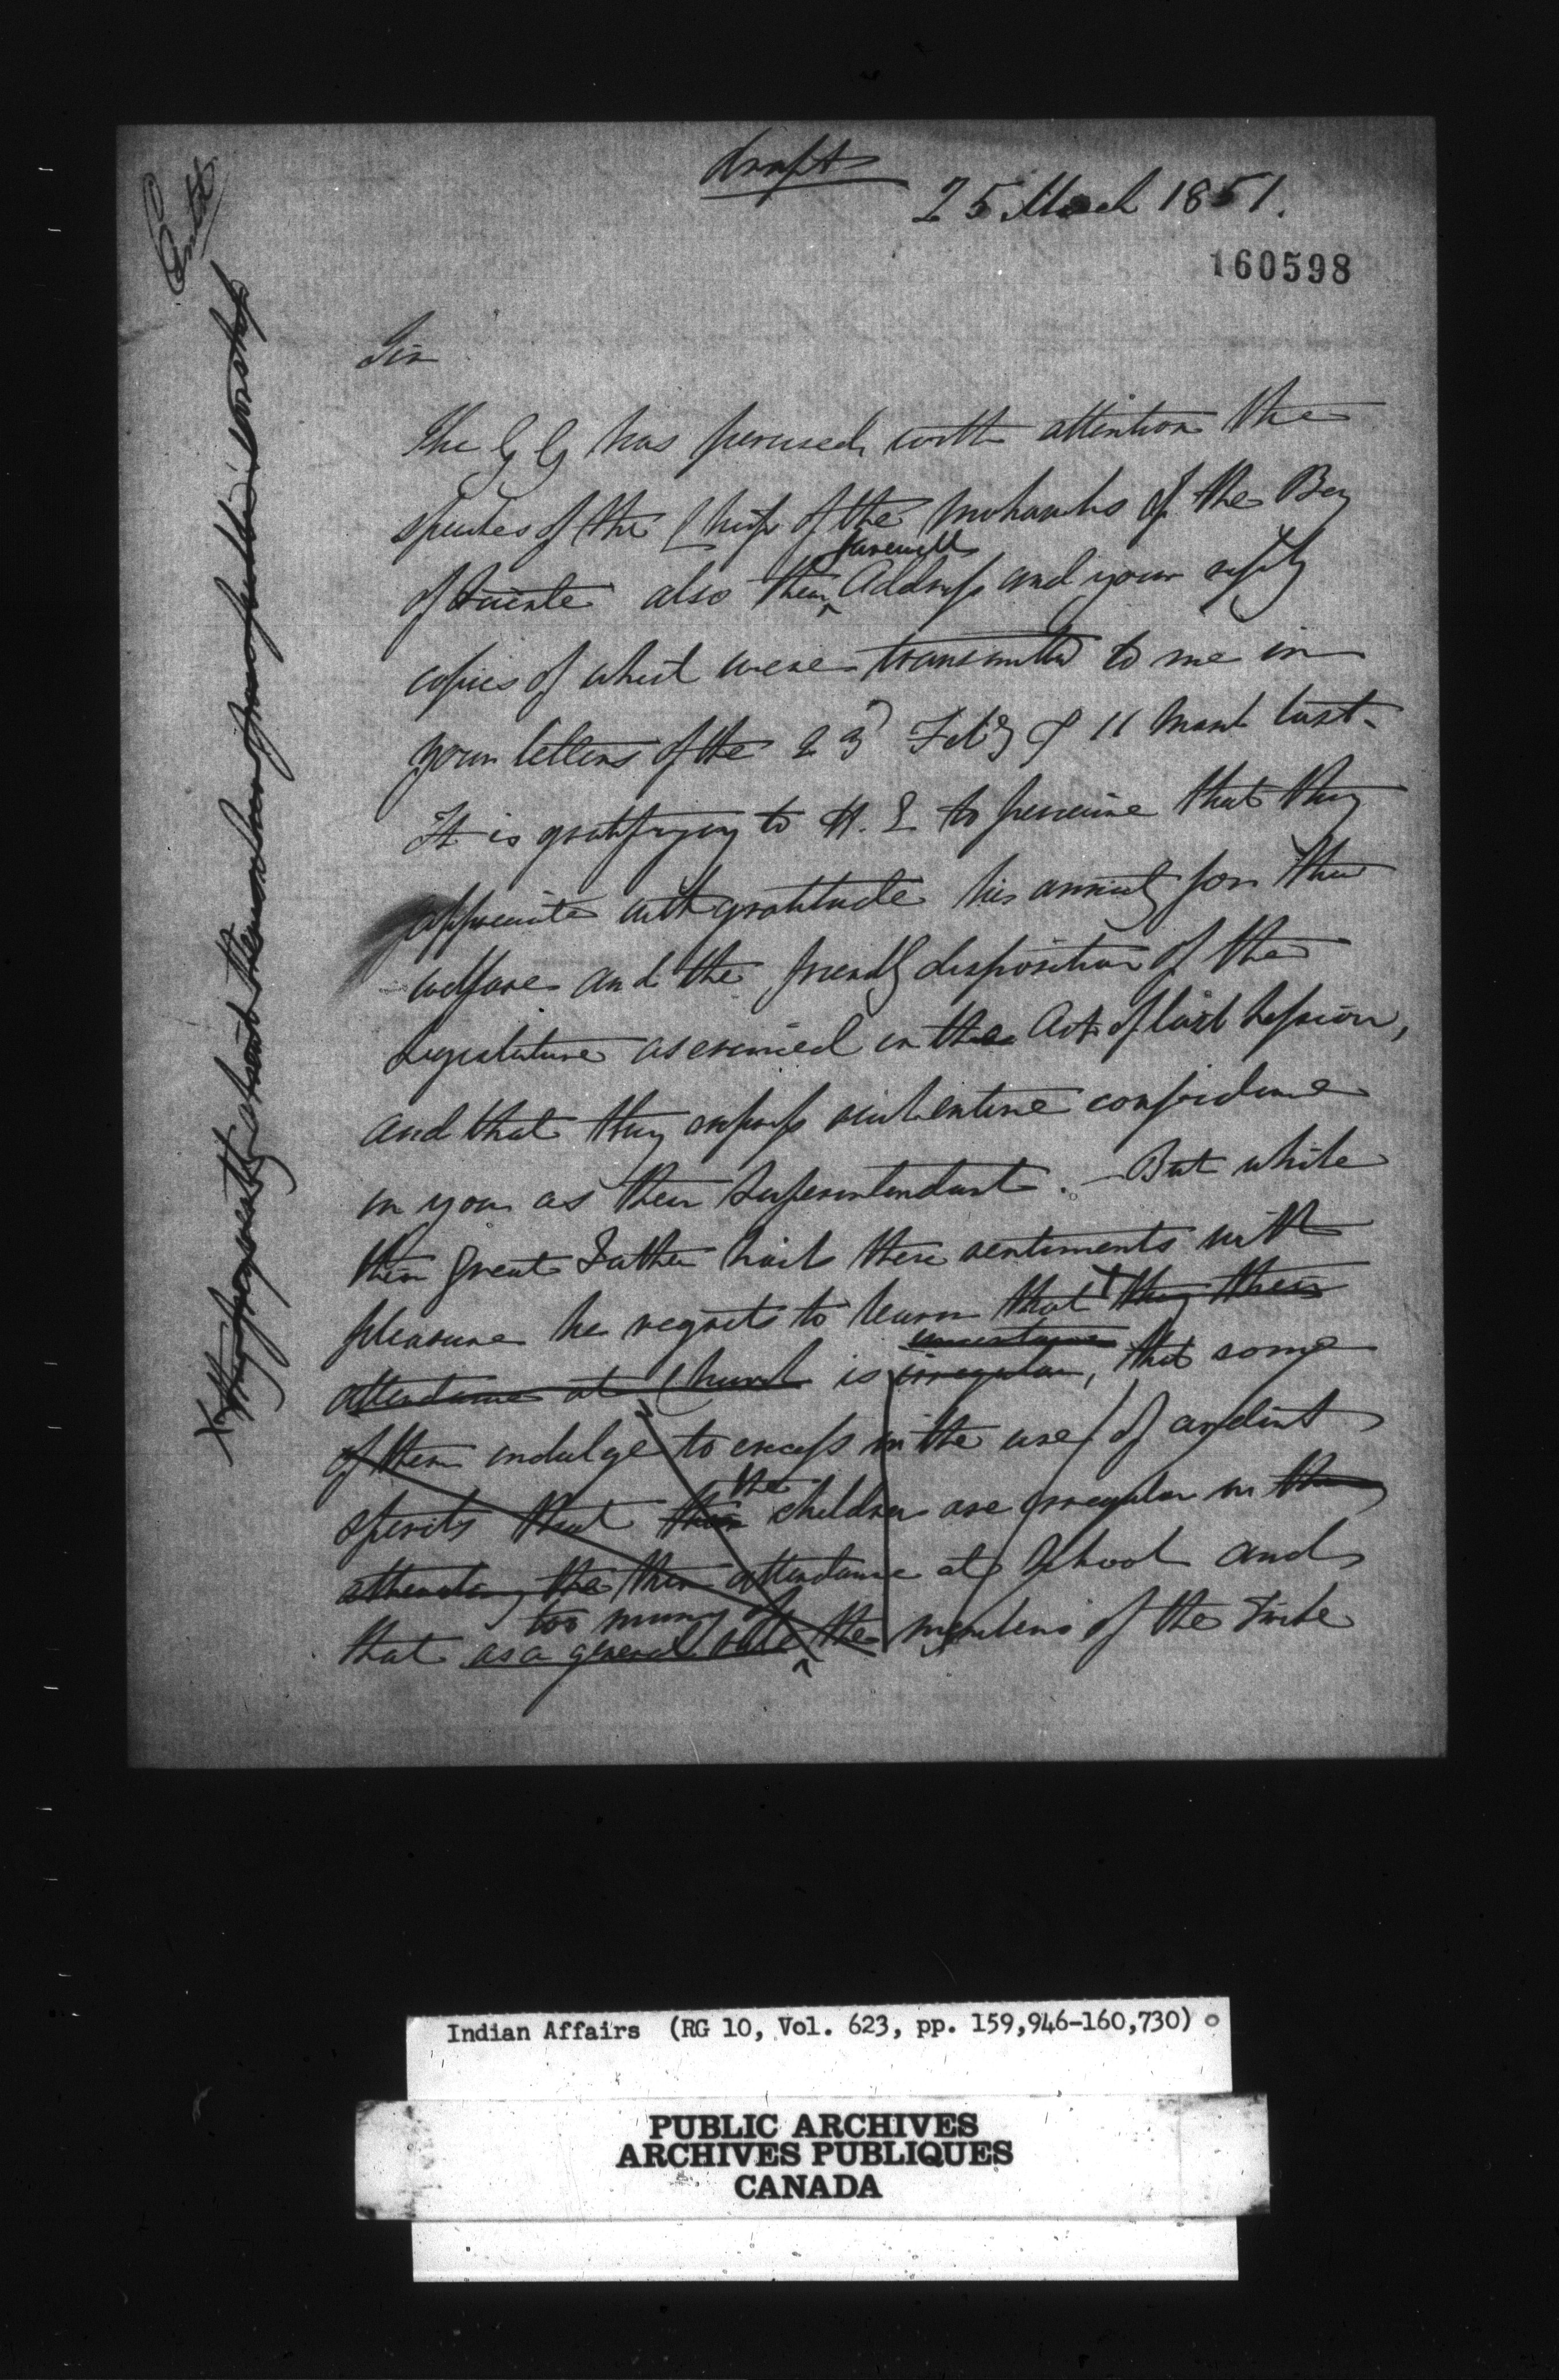 draft
25 March 1851.
160598
Sir
The G G has perused with attention the
speeches of the Chiefs of the Mohawks of the Bay
of Quinte also their farewell Address and your reply
copies of which were transmitted to me in
your letters of the 23 Feby & 11 March last.
It is gratifying to H. E to perceive that they
appreciate with gratitude his anxiety for their
welfare and the friendly disposition of the
Legislature as evinced in the Act of last Session,
and that they express such entire confidence
in you as their Superintendant. - But while
their great Father hails these sentiments with
pleasure he regrets to learn that they their
attendance at Church is irregular, that some
of them indulge to excess in the use of ardent
spirits that their the children are irregular in their
attending the their attendance at School and
that as a general rule too many of the members of the Tribe
x they frequently absent themselves from public worship
Indian Affairs (RG 10, Vol. 623, pp. 159,946-160,730)
PUBLIC ARCHIVES
ARCHIVES PUBLIQUES
CANADA